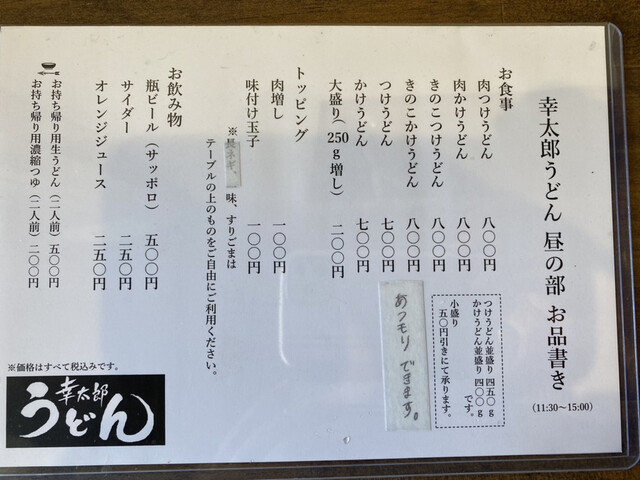 幸太郎うどん 昼の部 お品書き
(11:30〜15:00)
お食事
肉つけうどん 八〇〇円
肉かけうどん 八〇〇円
きのこつけうどん 八〇〇円
きのこかけうどん 八〇〇円
つけうどん 七〇〇円
かけうどん 七〇〇円
大盛り(250g増し) 二〇〇円
つけうどん並盛り 四五〇g
かけうどん並盛り 四〇〇g
です。
小盛り
五〇円引きにて承ります。
あつモリ できます。
トッピング
肉増し 一〇〇円
味付け玉子 一〇〇円
※ 味、すりごまは
テーブルの上のものをご自由にご利用ください。
お飲み物
瓶ビール(サッポロ) 五〇〇円
サイダー 二五〇円
オレンジジュース 二五〇円
お持ち帰り用生うどん(二人前) 五〇〇円
お持ち帰り用濃縮つゆ(二人前) 二〇〇円
※価格はすべて税込みです。
幸太郎
うどん